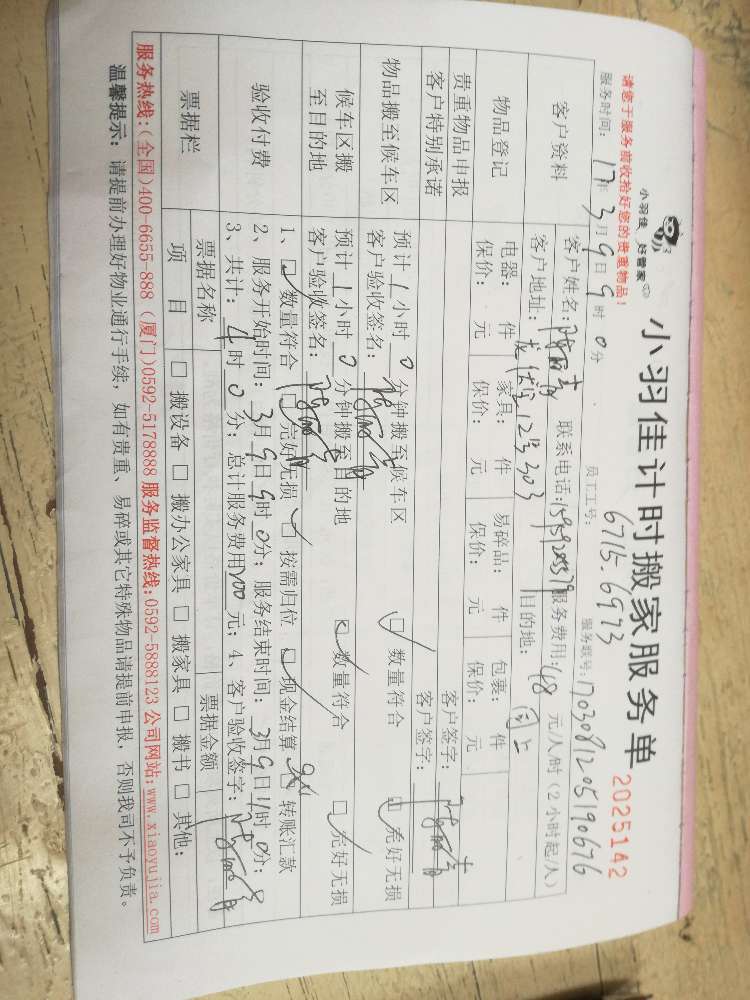 请您于服务前收拾好您的贵重物品！
小羽佳 好管家
小羽佳计时搬家服务单
2025142
服务时间： 17年 3月 9日 9时 0分
员工工号： 6715.6973
服务联号： 1703081205190676
客户资料
客户姓名： 联系电话： 服务费用： 48 元/人时（2小时起/人）
客户地址： 12号303 目的地： 同上
物品登记
电器： 件 家具： 件 易碎品： 件 包裹： 件
保价： 元 保价： 元 保价： 元 保价： 元
贵重物品申报 客户签字：
客户特别承诺 客户签字：
物品搬至候车区
预计 1 小时 0 分钟搬至候车区 数量符合 完好无损
客户验收签名：
候车区搬至目的地
预计 1 小时 0 分钟搬至目的地 数量符合 完好无损
客户验收签名：
验收付费
1、 数量符合 完好无损 按需归位 现金结算 转账汇款
2、服务开始时间： 3月 9日 9时 0分；服务结束时间： 3月 9日 11时 0分；
3、共计： 4 时 0 分；总计服务费用 200 元；4、客户验收签字：
票据栏
票据名称 票据金额
项 目 □ 搬设备 □ 搬办公家具 □ 搬家具 □ 搬书 □ 其他：
服务热线：(全国)400-6655-888 (厦门)0592-5178888 服务监督热线：0592-5888123 公司网站：www.xiaoyujia.com
温馨提示：请提前办理好物业通行手续，如有贵重、易碎或其它特殊物品请提前申报，否则我司不予负责。